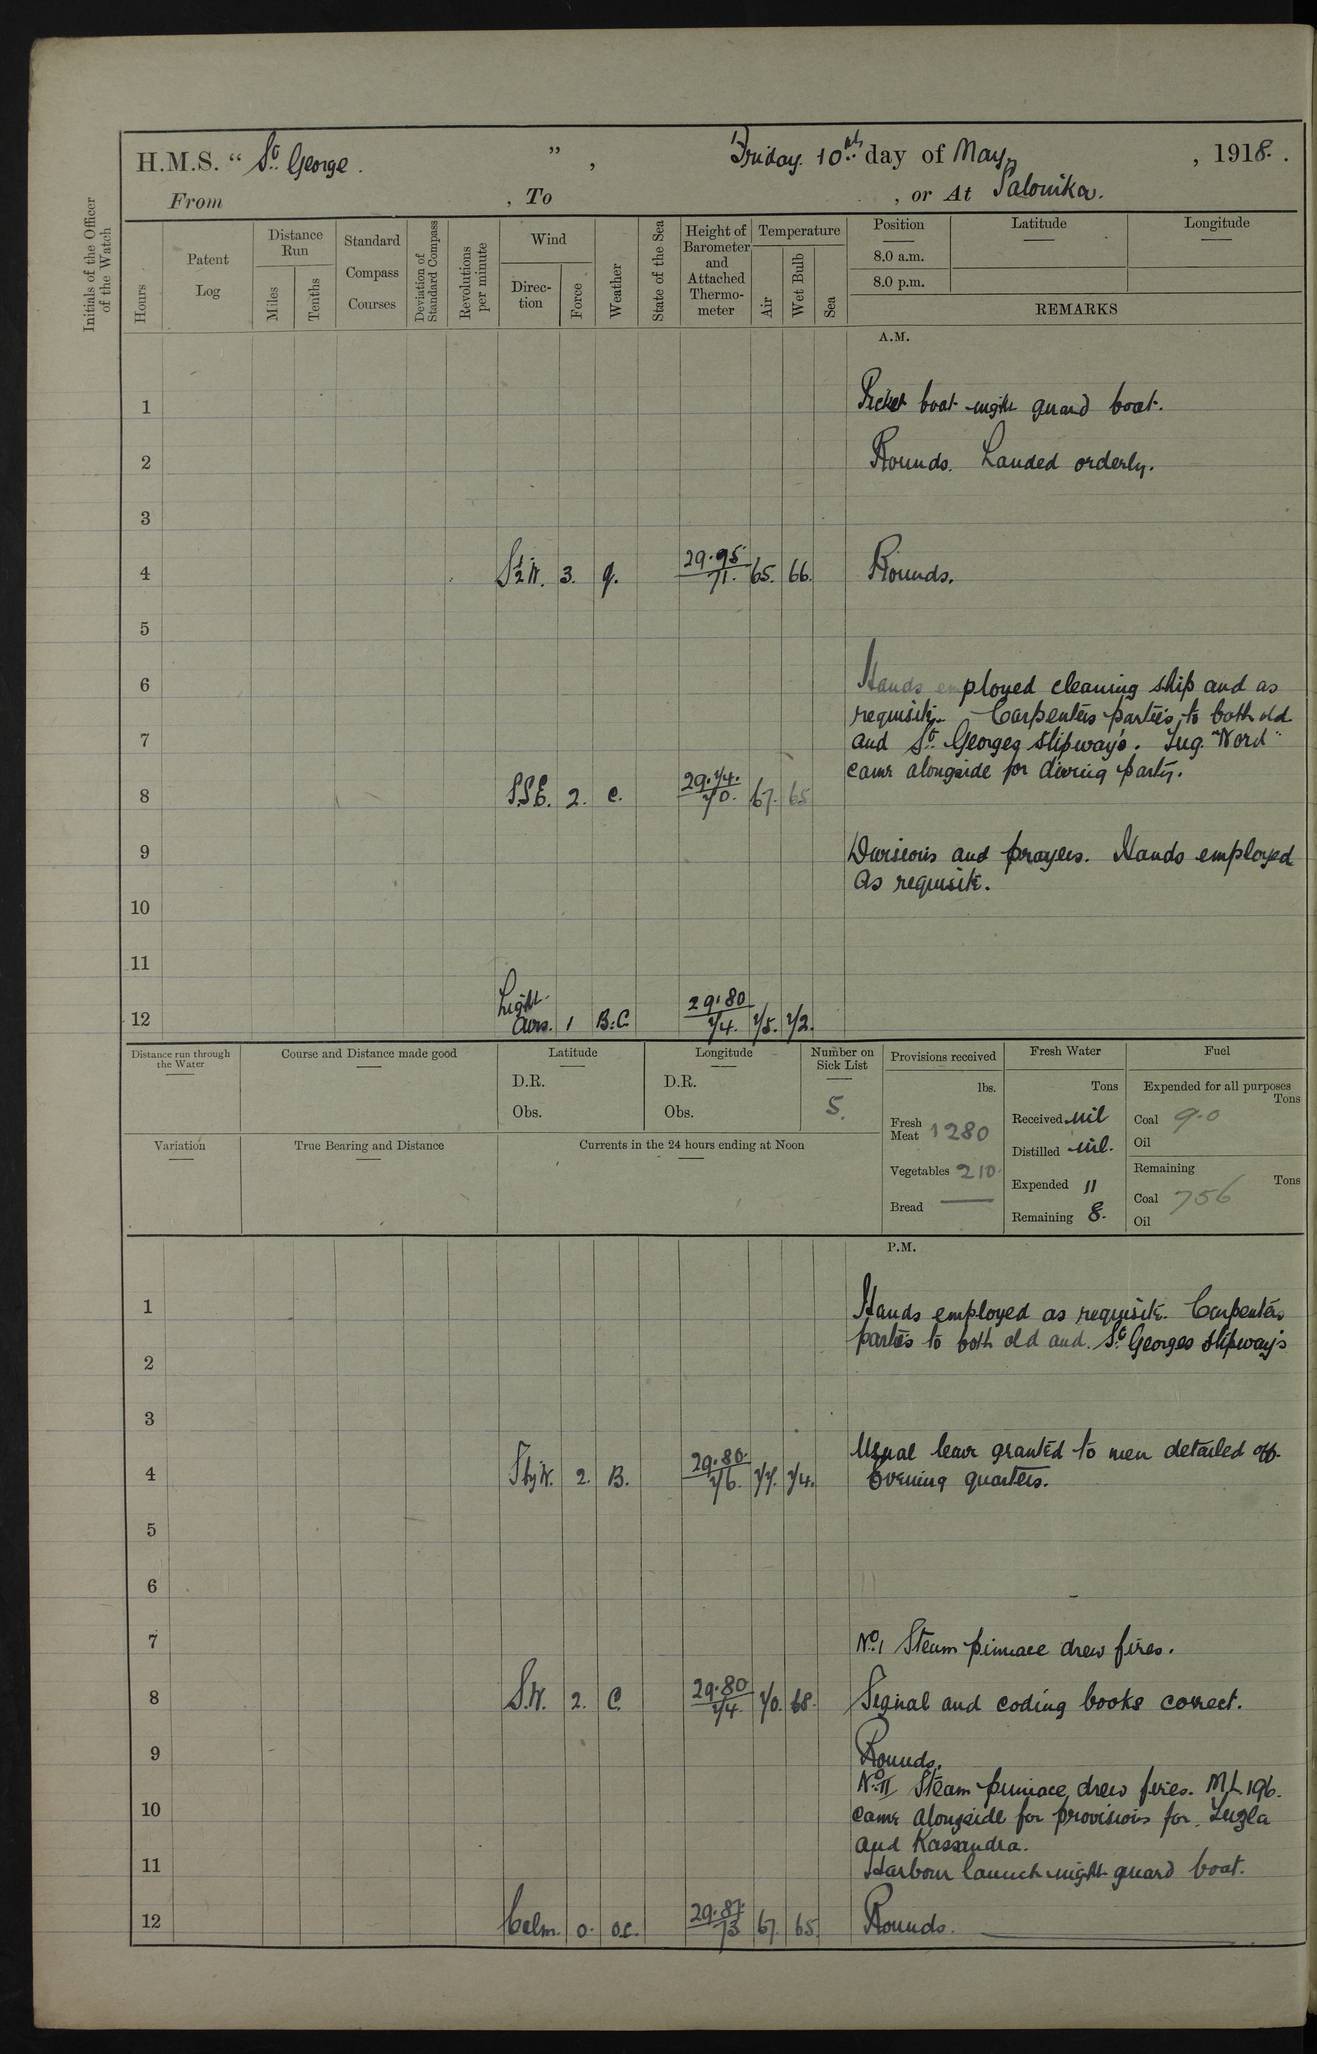 H.M.S. “ St. George. ” , Friday 10th day of May , 1918.
From , To , or At Salonika.
Initials of the Officer of the Watch
Hours
Patent Log
Distance Run
Miles
Tenths
Standard Compass Courses
Deviation of Standard Compass
Revolutions per minute
Wind
Direction
Force
Weather
State of the Sea
Height of Barometer and Attached Thermometer
Temperature
Air
Wet Bulb
Sea
Position
8.0 a.m.
8.0 p.m.
Latitude
Longitude
REMARKS
A.M.
1 Picket boat night guard boat.
2 Rounds. Landed orderly.
3
4 S½W. 3. 29.95 71. 65. 66. Rounds.
5
6 Hands employed cleaning ship and as
requisite. Carpenters parties to both old
7 and St. Georges slipway's. Tug "Nord"
came alongside for diving party.
8 S.S.E. 2. c. 29.74. 70. 67. 65
9 Divisions and prayers. Hands employed
as requisite.
10
11
12 Light Airs. 1 B.C. 29.80 74. 75. 72.
Distance run through the Water
Course and Distance made good
Latitude
D.R.
Obs.
Longitude
D.R.
Obs.
Number on Sick List
5.
Provisions received
lbs.
Fresh Meat 1280
Vegetables 210.
Bread —
Fresh Water
Tons
Received nil
Distilled nil.
Expended 11
Remaining 8.
Fuel
Expended for all purposes
Tons
Coal 9.0
Oil
Remaining
Tons
Coal 756
Oil
Variation
True Bearing and Distance
Currents in the 24 hours ending at Noon
P.M.
1 Hands employed as requisite. Carpenters
parties to both old and St. Georges slipway's
2
3
Usual leave granted to men detailed off.
4 S by W. 2. B. 29.80. 76. 77. 74. Evening quarters.
5
6
7 No. 1 Steam pinnace drew fires.
8 S.W. 2. C. 29.80 74. 70. 68. Signal and coding books correct.
9 Rounds.
No. II Steam pinnace drew fires. M.L. 196.
10 came alongside for provisions for Tuzla
and Kassandra.
11 Harbour launch night guard boat.
12 Calm. 0. o.c. 29.87 73 67. 65. Rounds.